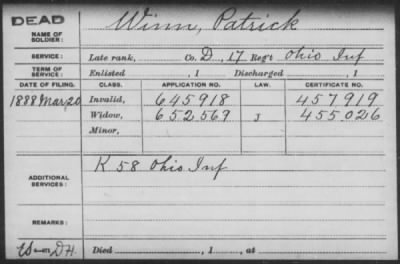 DEAD
NAME OF SOLDIER: Winn, Patrick
SERVICE: Late rank, Co. D, 17 Reg't Ohio Inf
TERM OF SERVICE: Enlisted , 1 Discharged , 1
DATE OF FILING. CLASS. APPLICATION NO. LAW. CERTIFICATE NO.
1888 Mar, 20 Invalid, 645918 457919
Widow, 652569 J 455026
Minor,
ADDITIONAL SERVICES: K 58 Ohio Inf
REMARKS:
Died , 1 , at